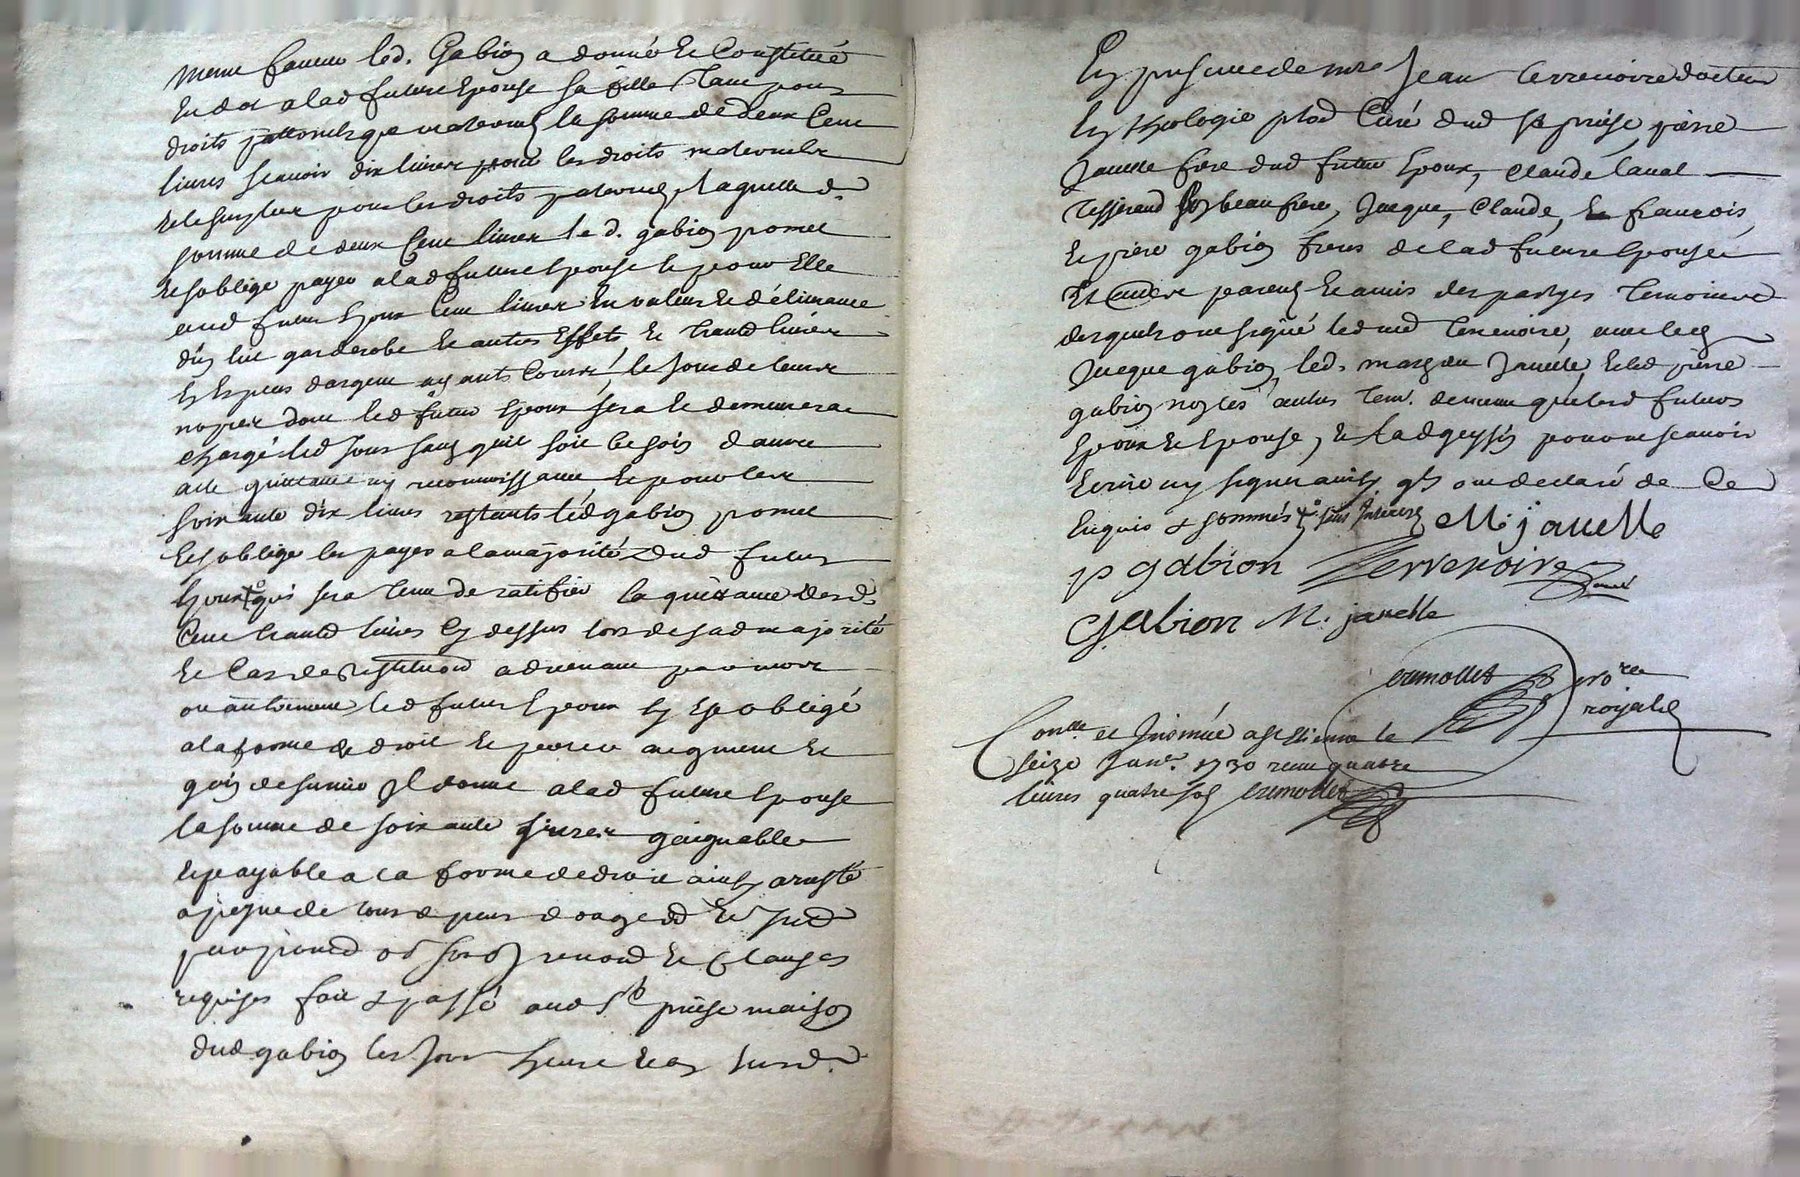 meme faveur led. Gabion a donné et Constitué
en dot a lad future Epouse sa fille tant pour
droits paternels que maternels la somme de deux Cent
livres scavoir dix livres pour les droits maternels
et le surplus pour les droits paternels, laquelle d.
somme de deux Cent livres le d. gabion promet
et soblige payer a lad future Epouse et pour Elle
aud futur Epoux Cent livres En valeur et délivrance
d'un lit garderobe et autres Effets et trante livres
En Especes dargent ayants Cours, le jour de leurs
nopces dont led futur Epoux sera et demeurera
chargé led jour sans quil soit besoin dautre
acte quittance ny reconnoissance, et pour les
soixante dix livres restants led gabion promet
et soblige les payer a la majorité dud futur
Epoux qui sera tenu de ratifier la quittance desd.
Cent trante livres Cy dessus lors de sad majorité
et Cas de Restitution advenant par mort
ou autrement led futur Epoux Sy Est obligé
a la forme de droit et pour augment et
gain de survie Il donne a lad future Epouse
la somme de soixante livres gaignable
et payable a la forme de droit ainsy aresté
a peyne de tous depens domages et Int
par promd os sons renond et Clauses
requises fait & passé aud St prieje maison
dud gabion les jour heure et an susd.
En presence de mre Jean terrenoire docteur
En theologie pbre Curé dud St prieje, pierre
Janelle frere dud futur Epoux, claude laval
tisserand son beaufrere, Jacque, Claude, et francois,
et pierre gabion freres de lad future Epouse
Et autres parens et amis des partyes temoins
desquels ont signé led mre terrenoire, avec led
Jacque gabion, led. Janelle, et led pierre
gabion non les autres tem. de meme que lesd futurs
Epoux et Epouse, et lad pour ne scavoir
Ecrire ny signer ainsy qls ont declaré de Ce
Enquis & sommés M. janelle
p gabion Terrenoire Curé
gabion M. janelle
cremollet nore
royal
Conlle et Insinué a St Etienne le
seize Janr. 1730 receu quatre
livres quatre sol cremollet